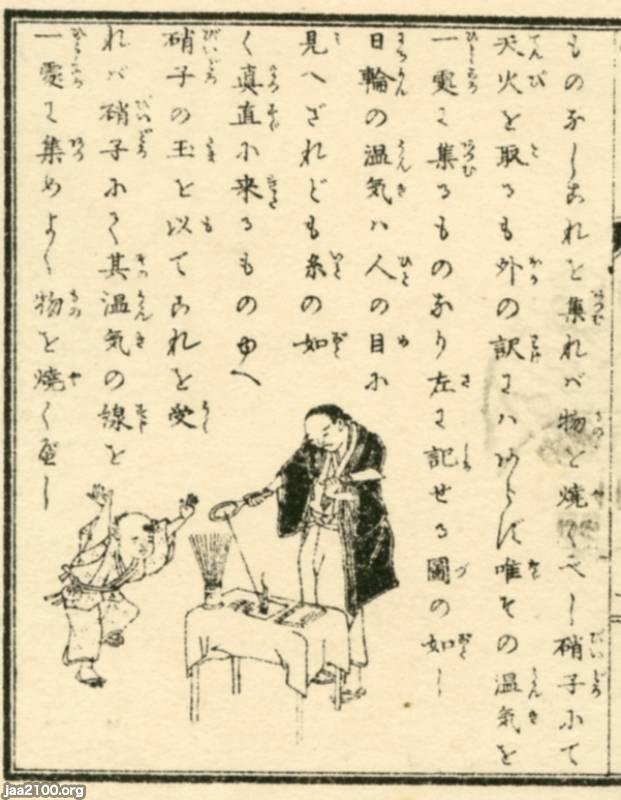 ものなしこれを集れバ物を焼くべし硝子にて
天火を取るも外の訳にハあらず唯その温気を
一處に集るものなり左に記せる圖の如し
日輪の温気ハ人の目に
見へざれども糸の如
く真直に来るものゆへ
硝子の玉を以てこれを受
れバ硝子にて其温気の線を
一處に集めよく物を焼くべし
jaa2100.org